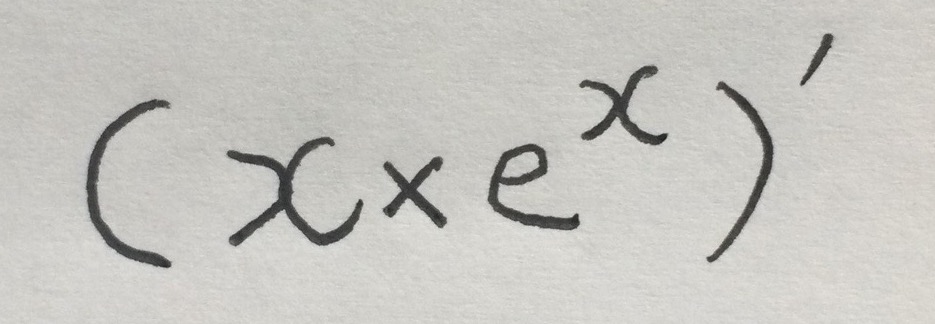 (x×eˣ)′